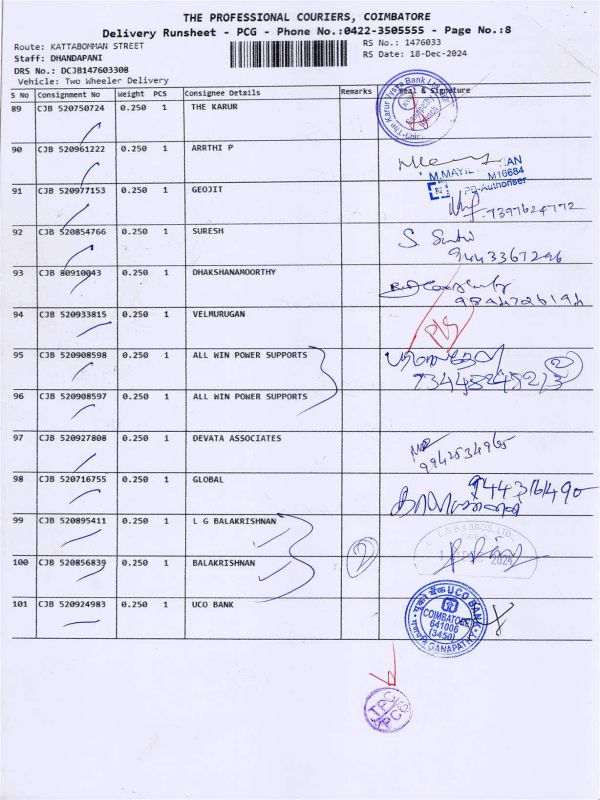 THE PROFESSIONAL COURIERS, COIMBATORE
Delivery Runsheet - PCG - Phone No.:0422-3505555 - Page No.:8
Route: KATTABOMMAN STREET
RS No.: 1476033
Staff: DHANDAPANI
RS Date: 18-Dec-2024
DRS No.: DCJB147603308
Vehicle: Two Wheeler Delivery
S No Consignment No Weight PCS Consignee Details Remarks Seal & Signature
89 CJB 520750724 0.250 1 THE KARUR
90 CJB 520961222 0.250 1 ARRTHI P
M16684
PB-Authoriser
91 CJB 520977153 0.250 1 GEOJIT
7397624772
92 CJB 520854766 0.250 1 SURESH
9443367296
93 CJB 80910043 0.250 1 DHAKSHANAMOORTHY
94 CJB 520933815 0.250 1 VELMURUGAN
95 CJB 520908598 0.250 1 ALL WIN POWER SUPPORTS
2
96 CJB 520908597 0.250 1 ALL WIN POWER SUPPORTS
97 CJB 520927808 0.250 1 DEVATA ASSOCIATES
98 CJB 520716755 0.250 1 GLOBAL
99 CJB 520895411 0.250 1 L G BALAKRISHNAN
100 CJB 520856839 0.250 1 BALAKRISHNAN
2
101 CJB 520924983 0.250 1 UCO BANK
यूको बैंक UCO BANK
COIMBATORE
641006
(3450)
GANAPATHY